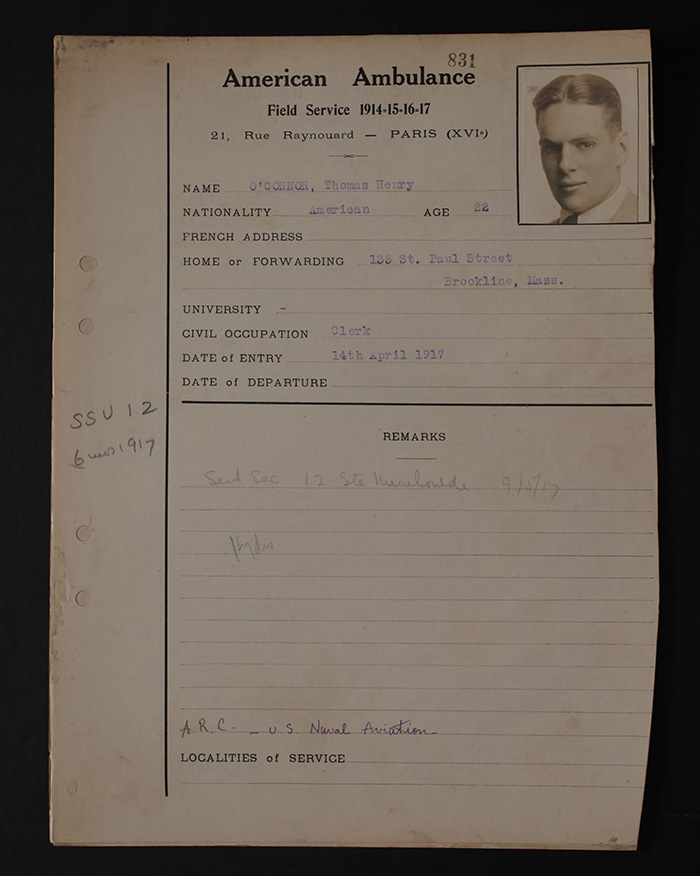 831
American Ambulance
Field Service 1914-15-16-17
21, Rue Raynouard — PARIS (XVIe)
NAME O'CONNOR, Thomas Henry
NATIONALITY American AGE 22
FRENCH ADDRESS
HOME or FORWARDING 135 St. Paul Street
Brookline, Mass.
UNIVERSITY -
CIVIL OCCUPATION Clerk
DATE of ENTRY 14th April 1917
DATE of DEPARTURE
SSU 12
6 mos 1917
REMARKS
Sent Sec 12 Ste Menehoulde 9/5/17
A.R.C. - U S Naval Aviation -
LOCALITIES of SERVICE